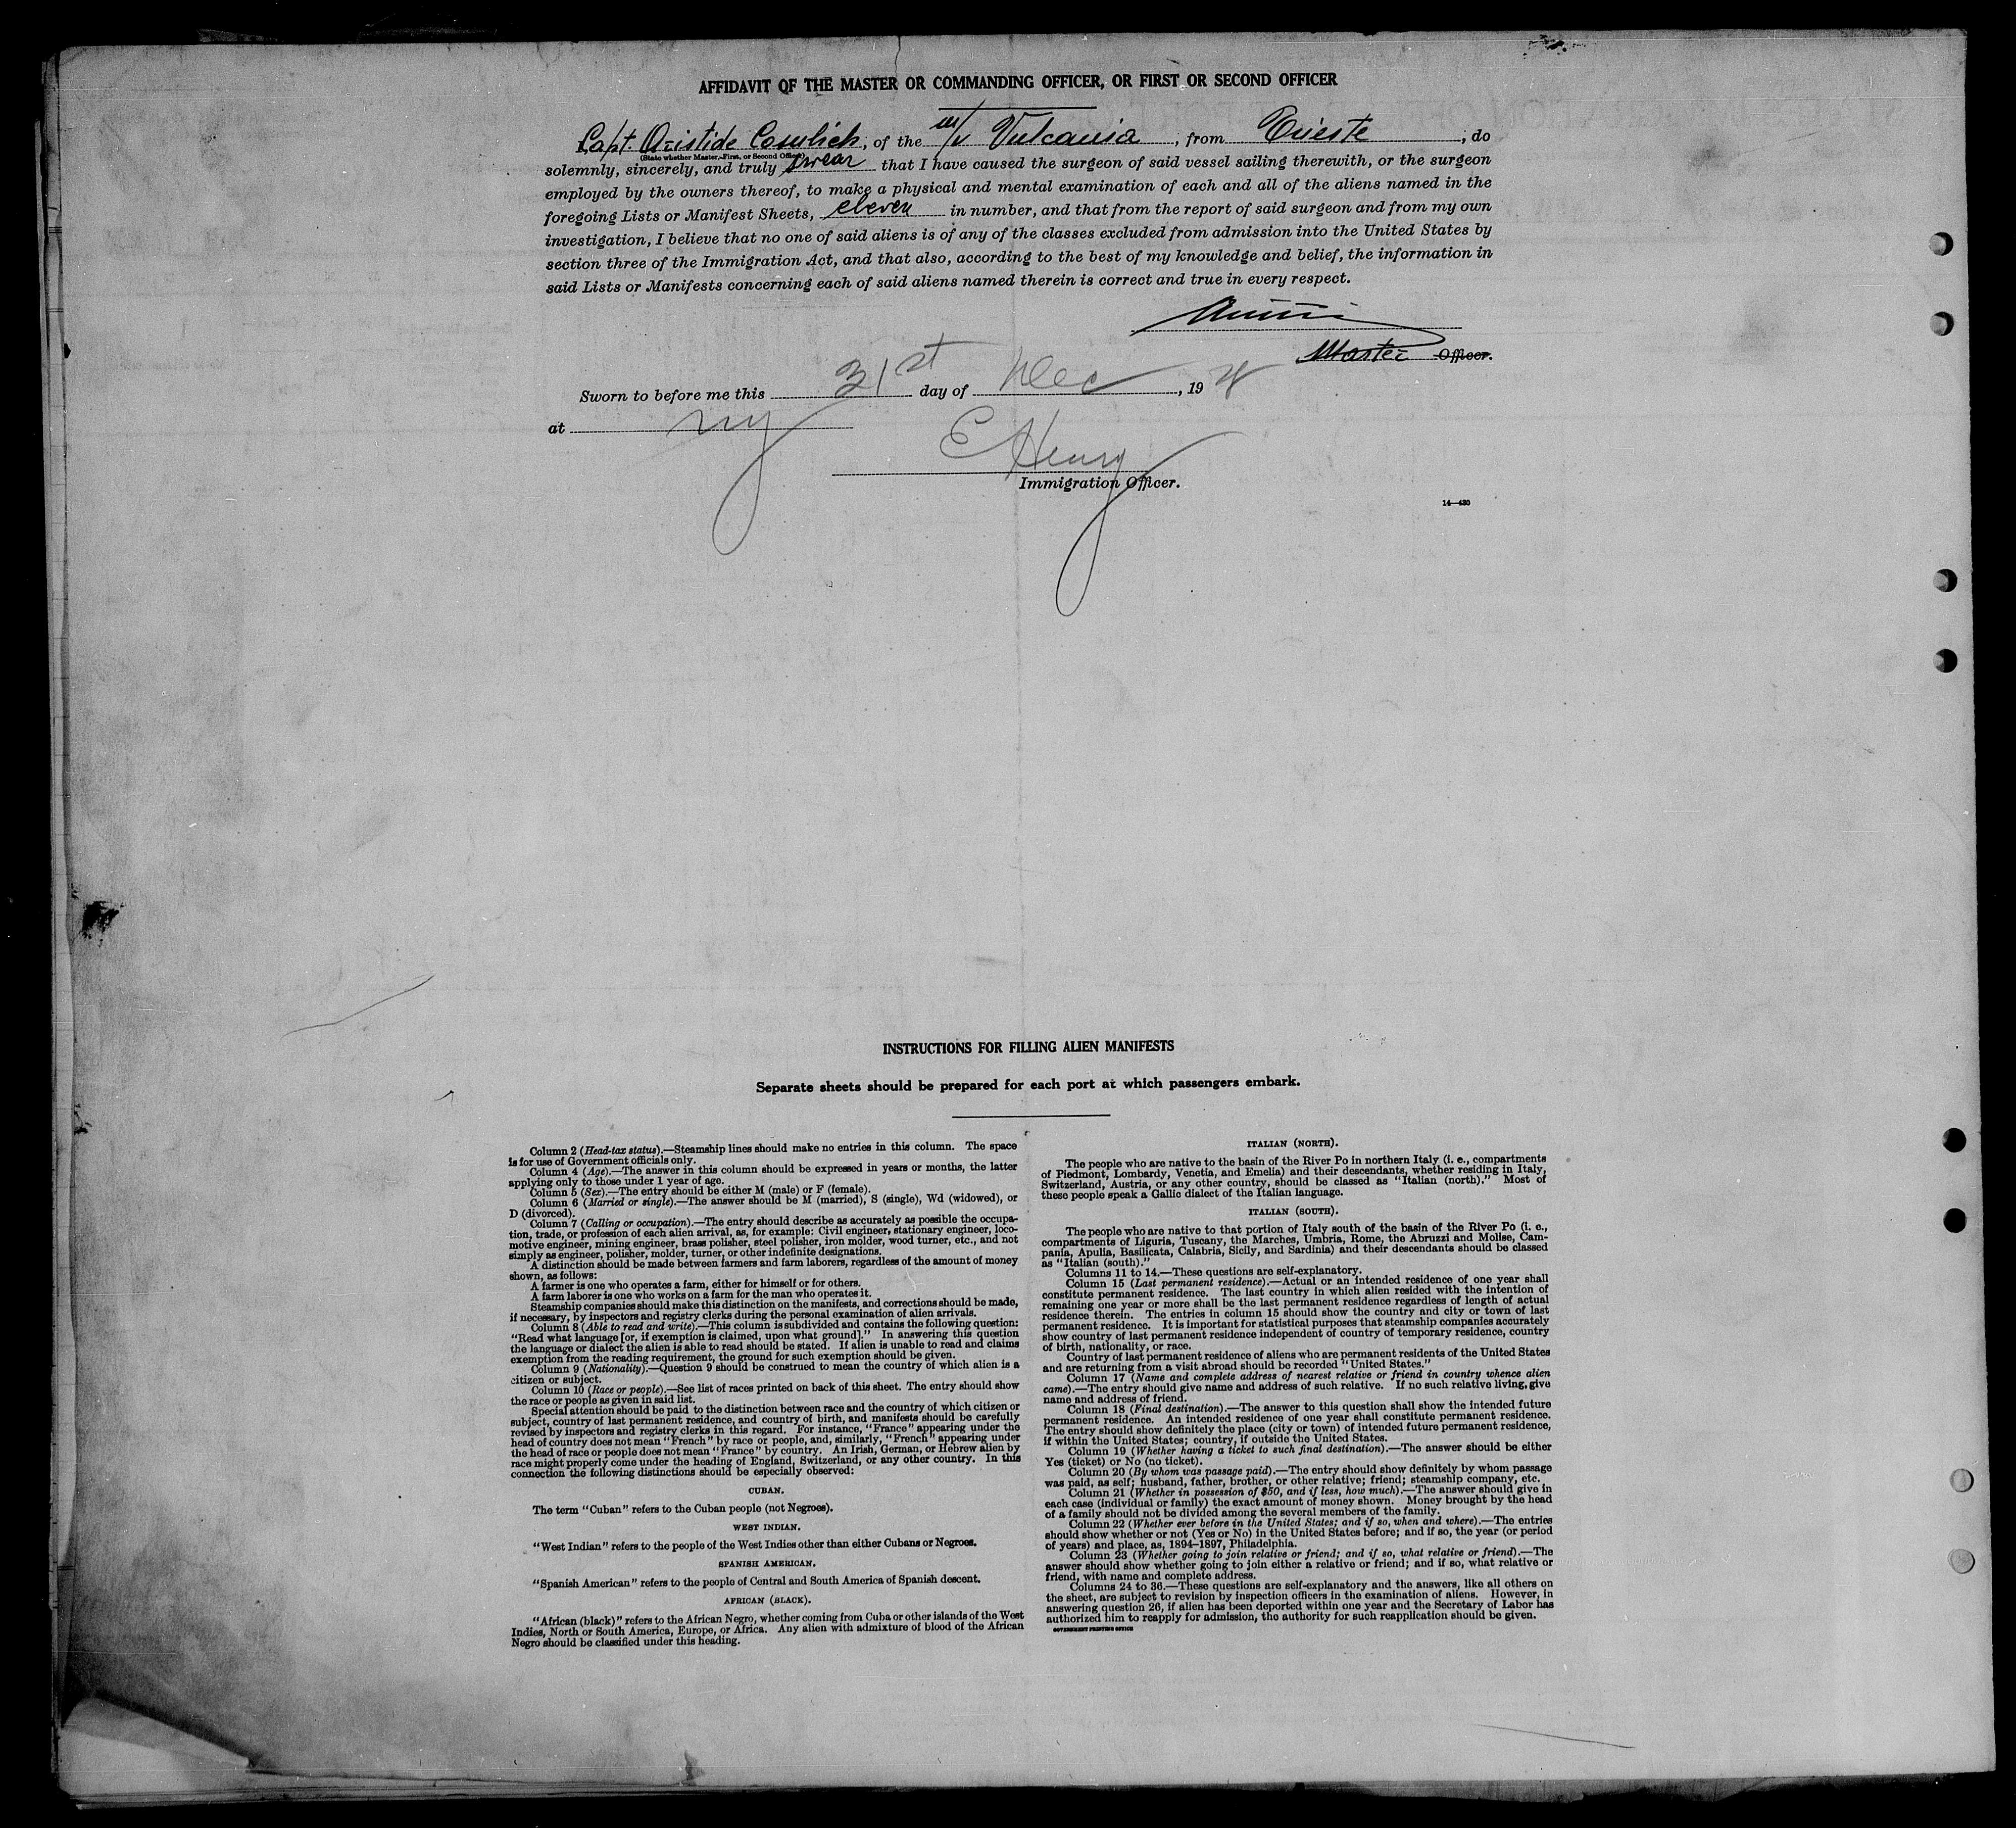 AFFIDAVIT OF THE MASTER OR COMMANDING OFFICER, OR FIRST OR SECOND OFFICER
Capt. Aristide Cosulich, of the m/v Vulcania, from Trieste, do
(State whether Master, First, or Second Officer)
solemnly, sincerely, and truly swear that I have caused the surgeon of said vessel sailing therewith, or the surgeon
employed by the owners thereof, to make a physical and mental examination of each and all of the aliens named in the
foregoing Lists or Manifest Sheets, eleven in number, and that from the report of said surgeon and from my own
investigation, I believe that no one of said aliens is of any of the classes excluded from admission into the United States by
section three of the Immigration Act, and that also, according to the best of my knowledge and belief, the information in
said Lists or Manifests concerning each of said aliens named therein is correct and true in every respect.
Master Officer.
Sworn to before me this 31st day of Dec, 19
at NY
E Henry
Immigration Officer.
14—430
INSTRUCTIONS FOR FILLING ALIEN MANIFESTS
Separate sheets should be prepared for each port at which passengers embark.
Column 2 (Head-tax status).—Steamship lines should make no entries in this column. The space
is for use of Government officials only.
Column 4 (Age).—The answer in this column should be expressed in years or months, the latter
applying only to those under 1 year of age.
Column 5 (Sex).—The entry should be either M (male) or F (female).
Column 6 (Married or single).—The answer should be M (married), S (single), Wd (widowed), or
D (divorced).
Column 7 (Calling or occupation).—The entry should describe as accurately as possible the occupa-
tion, trade, or profession of each alien arrival, as, for example: Civil engineer, stationary engineer, loco-
motive engineer, mining engineer, brass polisher, steel polisher, iron molder, wood turner, etc., and not
simply as engineer, polisher, molder, turner, or other indefinite designations.
A distinction should be made between farmers and farm laborers, regardless of the amount of money
shown, as follows:
A farmer is one who operates a farm, either for himself or for others.
A farm laborer is one who works on a farm for the man who operates it.
Steamship companies should make this distinction on the manifests, and corrections should be made,
if necessary, by inspectors and registry clerks during the personal examination of alien arrivals.
Column 8 (Able to read and write).—This column is subdivided and contains the following question:
"Read what language [or, if exemption is claimed, upon what ground]." In answering this question
the language or dialect the alien is able to read should be stated. If alien is unable to read and claims
exemption from the reading requirement, the ground for such exemption should be given.
Column 9 (Nationality).—Question 9 should be construed to mean the country of which alien is a
citizen or subject.
Column 10 (Race or people).—See list of races printed on back of this sheet. The entry should show
the race or people as given in said list.
Special attention should be paid to the distinction between race and the country of which citizen or
subject, country of last permanent residence, and country of birth, and manifests should be carefully
revised by inspectors and registry clerks in this regard. For instance, "France" appearing under the
head of country does not mean "French" by race or people, and, similarly, "French" appearing under
the head of race or people does not mean "France" by country. An Irish, German, or Hebrew alien by
race might properly come under the heading of England, Switzerland, or any other country. In this
connection the following distinctions should be especially observed:
CUBAN.
The term "Cuban" refers to the Cuban people (not Negroes).
WEST INDIAN.
"West Indian" refers to the people of the West Indies other than either Cubans or Negroes.
SPANISH AMERICAN.
"Spanish American" refers to the people of Central and South America of Spanish descent.
AFRICAN (BLACK).
"African (black)" refers to the African Negro, whether coming from Cuba or other islands of the West
Indies, North or South America, Europe, or Africa. Any alien with admixture of blood of the African
Negro should be classified under this heading.
ITALIAN (NORTH).
The people who are native to the basin of the River Po in northern Italy (i. e., compartments
of Piedmont, Lombardy, Venetia, and Emelia) and their descendants, whether residing in Italy,
Switzerland, Austria, or any other country, should be classed as "Italian (north)." Most of
these people speak a Gallic dialect of the Italian language.
ITALIAN (SOUTH).
The people who are native to that portion of Italy south of the basin of the River Po (i. e.,
compartments of Liguria, Tuscany, the Marches, Umbria, Rome, the Abruzzi and Molise, Cam-
pania, Apulia, Basilicata, Calabria, Sicily, and Sardinia) and their descendants should be classed
as "Italian (south)."
Columns 11 to 14.—These questions are self-explanatory.
Column 15 (Last permanent residence).—Actual or an intended residence of one year shall
constitute permanent residence. The last country in which alien resided with the intention of
remaining one year or more shall be the last permanent residence regardless of length of actual
residence therein. The entries in column 15 should show the country and city or town of last
permanent residence. It is important for statistical purposes that steamship companies accurately
show country of last permanent residence independent of country of temporary residence, country
of birth, nationality, or race.
Country of last permanent residence of aliens who are permanent residents of the United States
and are returning from a visit abroad should be recorded "United States."
Column 17 (Name and complete address of nearest relative or friend in country whence alien
came).—The entry should give name and address of such relative. If no such relative living, give
name and address of friend.
Column 18 (Final destination).—The answer to this question shall show the intended future
permanent residence. An intended residence of one year shall constitute permanent residence.
The entry should show definitely the place (city or town) of intended future permanent residence,
if within the United States; country, if outside the United States.
Column 19 (Whether having a ticket to such final destination).—The answer should be either
Yes (ticket) or No (no ticket).
Column 20 (By whom was passage paid).—The entry should show definitely by whom passage
was paid, as self; husband, father, brother, or other relative; friend; steamship company, etc.
Column 21 (Whether in possession of $50, and if less, how much).—The answer should give in
each case (individual or family) the exact amount of money shown. Money brought by the head
of a family should not be divided among the several members of the family.
Column 22 (Whether ever before in the United States; and if so, when and where).—The entries
should show whether or not (Yes or No) in the United States before; and if so, the year (or period
of years) and place, as, 1894–1897, Philadelphia.
Column 23 (Whether going to join relative or friend; and if so, what relative or friend).—The
answer should show whether going to join either a relative or friend; and if so, what relative or
friend, with name and complete address.
Columns 24 to 36.—These questions are self-explanatory and the answers, like all others on
the sheet, are subject to revision by inspection officers in the examination of aliens. However, in
answering question 26, if alien has been deported within one year and the Secretary of Labor has
authorized him to reapply for admission, the authority for such reapplication should be given.
GOVERNMENT PRINTING OFFICE